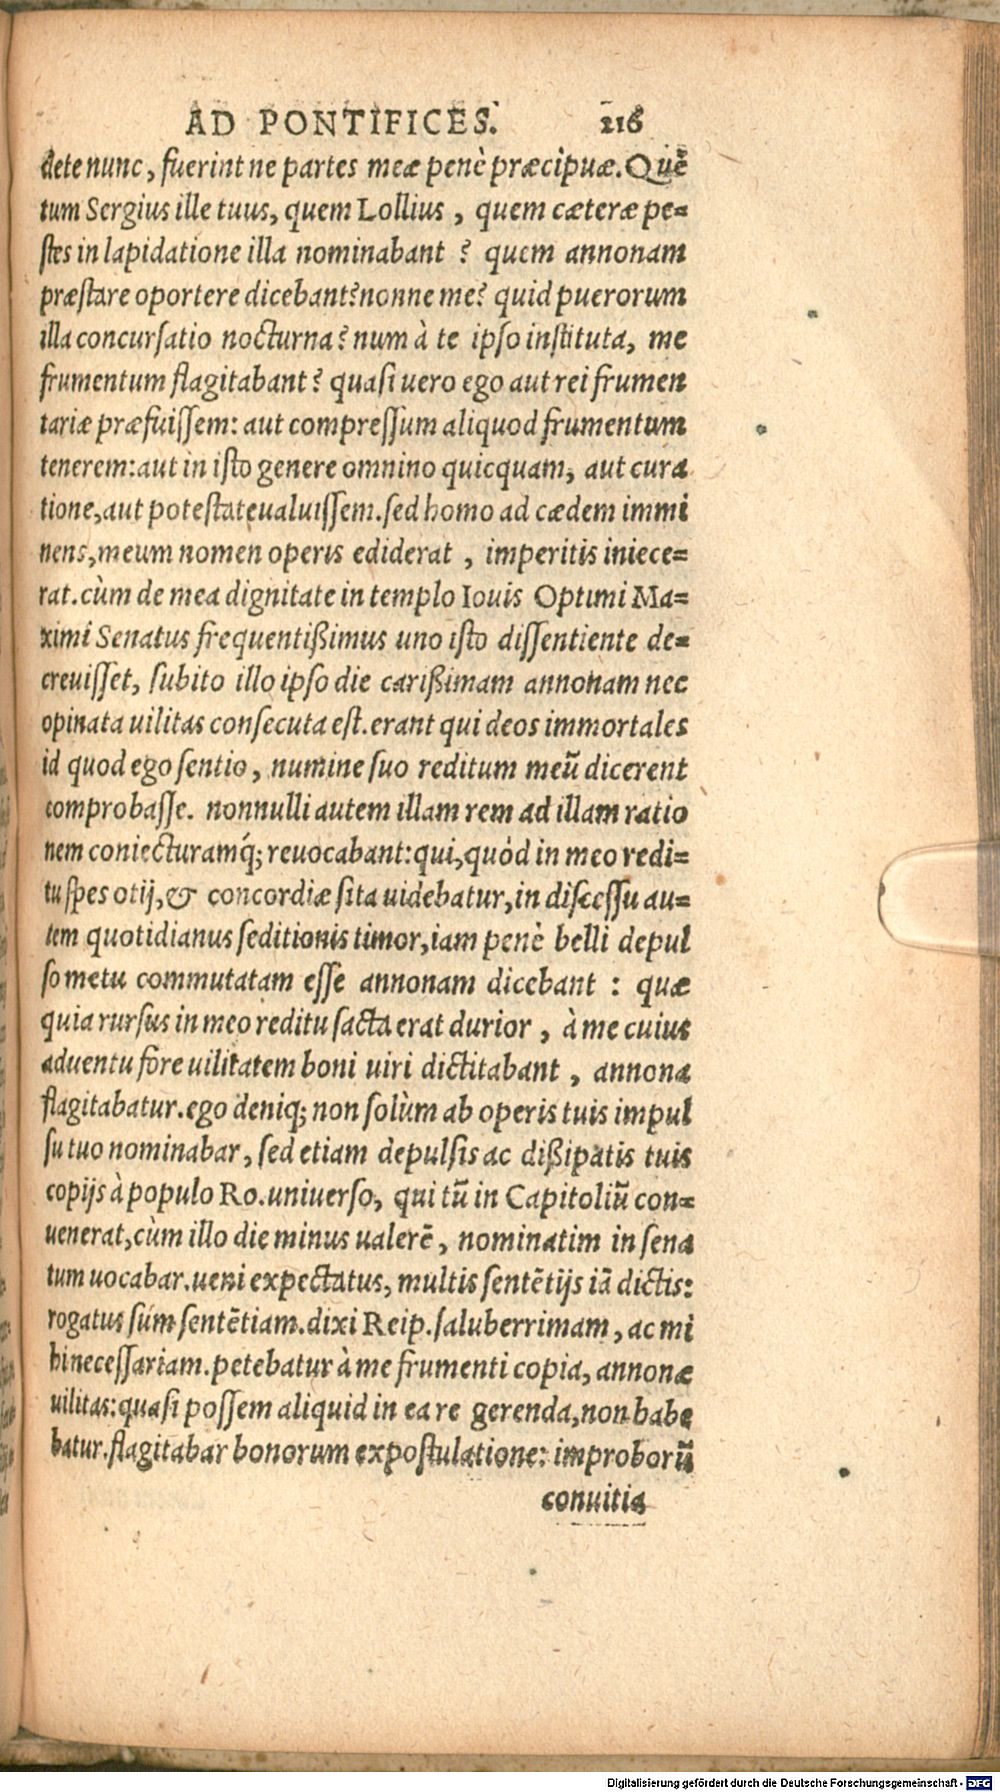 AD PONTIFICES. 216
dete nunc, fuerint ne partes meæ penè præcipuæ. Quē
tum Sergius ille tuus, quem Lollius, quem cæteræ pe=
stes in lapidatione illa nominabant? quem annonam
præstare oportere dicebant? nonne me? quid puerorum
illa concursatio nocturna? num à te ipso instituta, me
frumentum flagitabant? quasi uero ego aut rei frumen
tariæ præfuissem: aut compressum aliquod frumentum
tenerem: aut in isto genere omnino quicquam, aut cura
tione, aut potestate ualuissem. sed homo ad cædem immi
nens, meum nomen operis ediderat, imperitis iniece=
rat. cùm de mea dignitate in templo Iouis Optimi Ma=
ximi Senatus frequentißimus uno isto dissentiente de=
creuisset, subito illo ipso die carißimam annonam nec
opinata uilitas consecuta est. erant qui deos immortales
id quod ego sentio, numine suo reditum meū dicerent
comprobasse. nonnulli autem illam rem ad illam ratio
nem coniecturamq́; reuocabant: qui, quòd in meo redi=
tu spes otij, & concordiæ sita uidebatur, in discessu au=
tem quotidianus seditionis timor, iam penè belli depul
so metu commutatam esse annonam dicebant: quæ
quia rursus in meo reditu facta erat durior, à me cuius
aduentu fore uilitatem boni uiri dictitabant, annona
flagitabatur. ego deniq; non solùm ab operis tuis impul
su tuo nominabar, sed etiam depulsis ac dißipatis tuis
copijs à populo Ro. uniuerso, qui tū in Capitoliū con=
uenerat, cùm illo die minus ualerē, nominatim in sena
tum uocabar. ueni expectatus, multis sentētijs iā dictis:
rogatus súm sentētiam. dixi Reip. saluberrimam, ac mi
hi necessariam. petebatur à me frumenti copia, annonæ
uilitas: quasi possem aliquid in ea re gerenda, non habe
batur. flagitabar bonorum expostulatione: improborū
conuitia
Digitalisierung gefördert durch die Deutsche Forschungsgemeinschaft - DFG